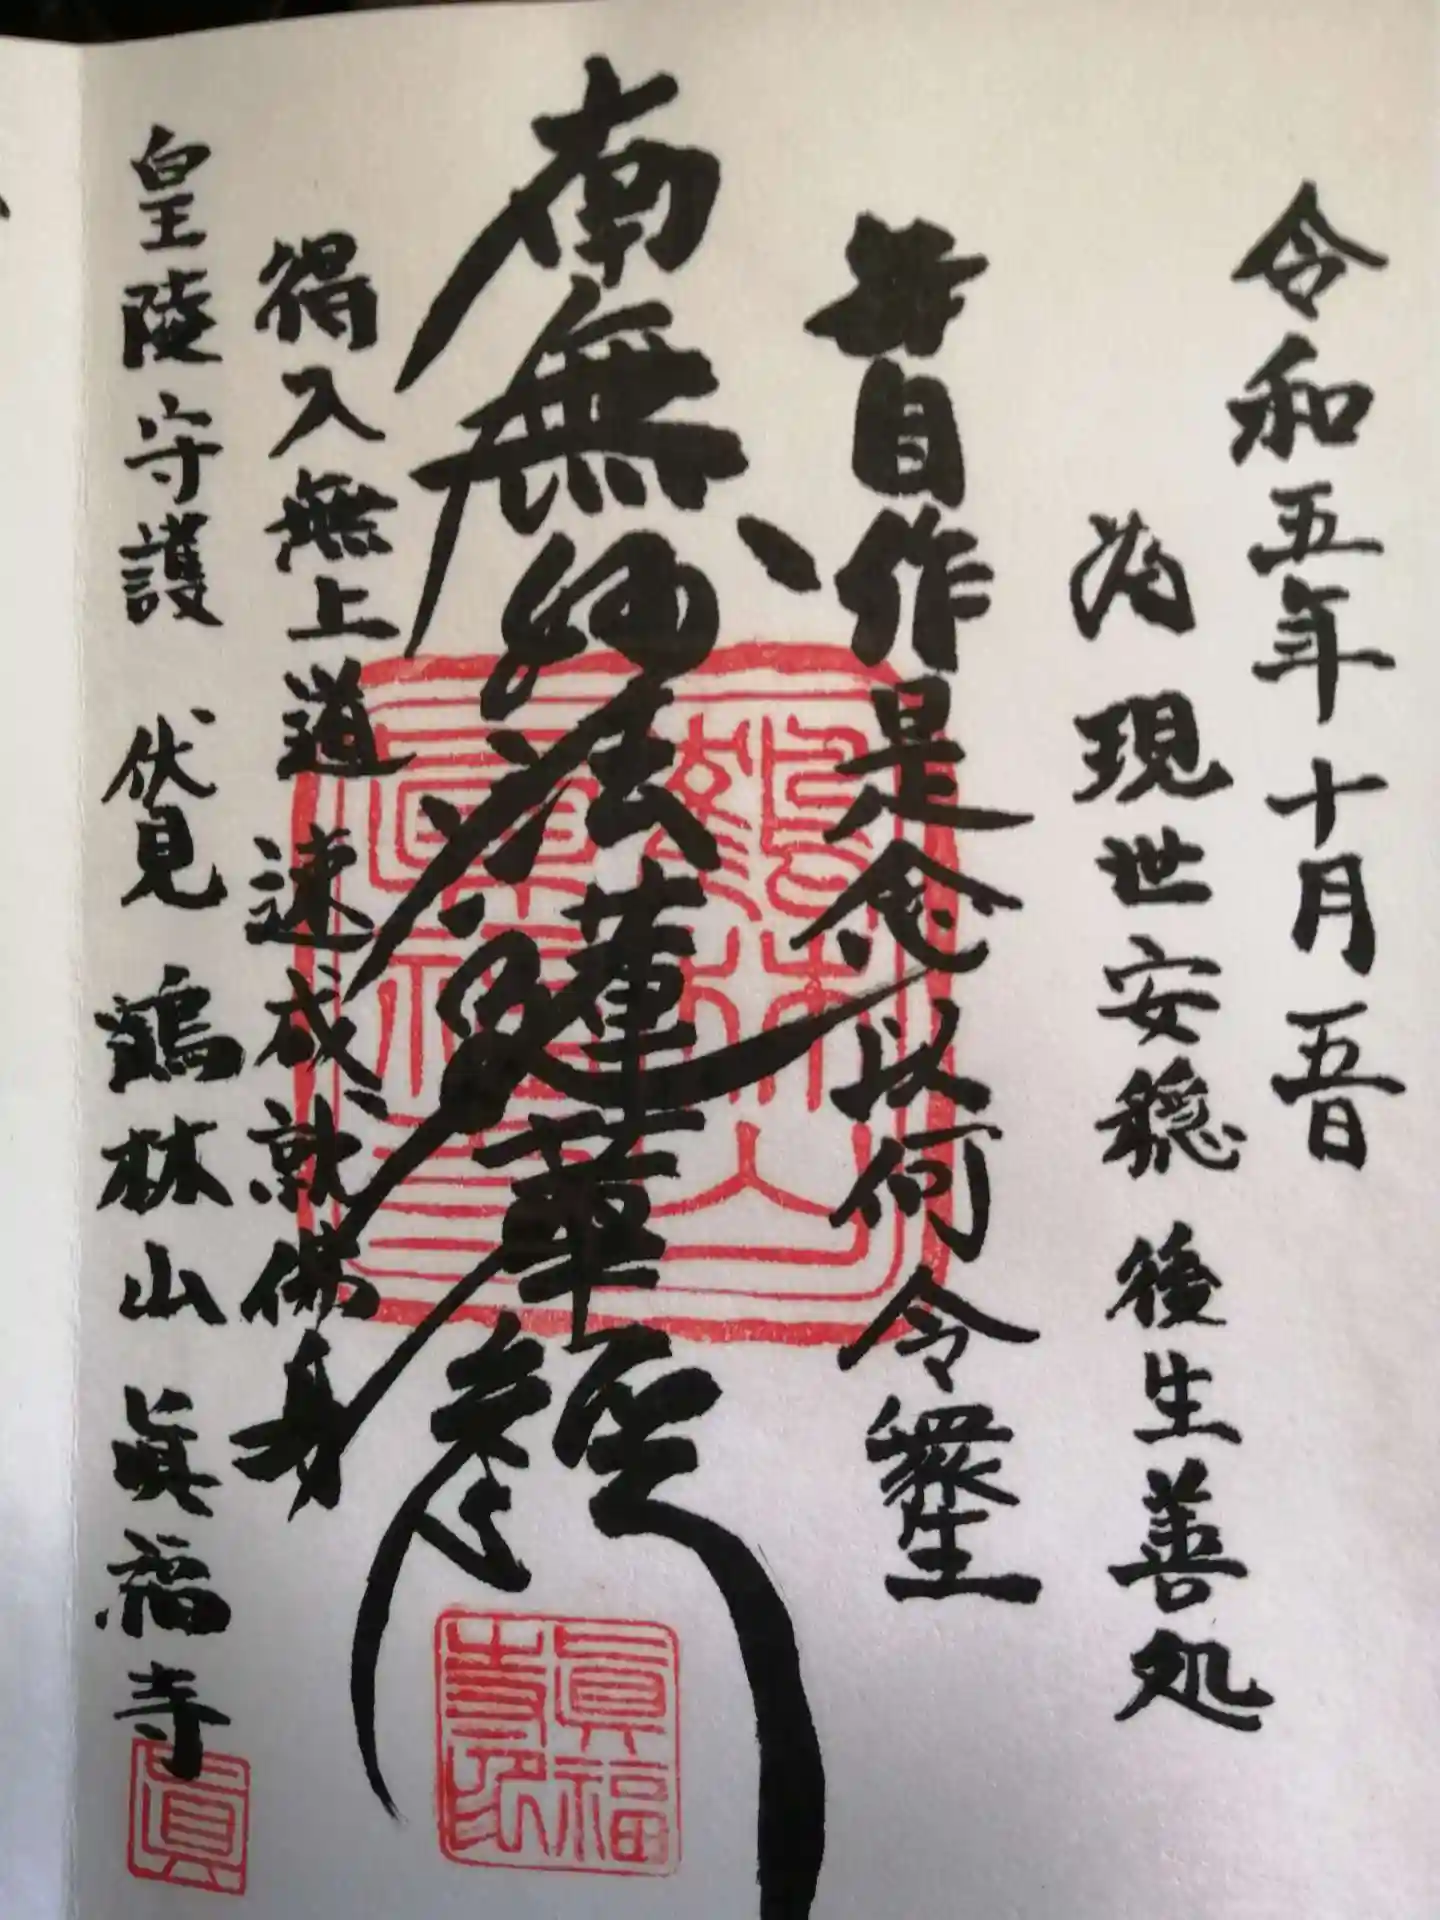 令和五年十月五日
為現世安穏 後生善処
毎自作是念以何令衆生
南無妙法蓮華経
得入無上道 速成就佛身
皇陵守護 伏見 鶴林山 眞福寺
鶴林山
眞福寺
眞福
寺印
眞